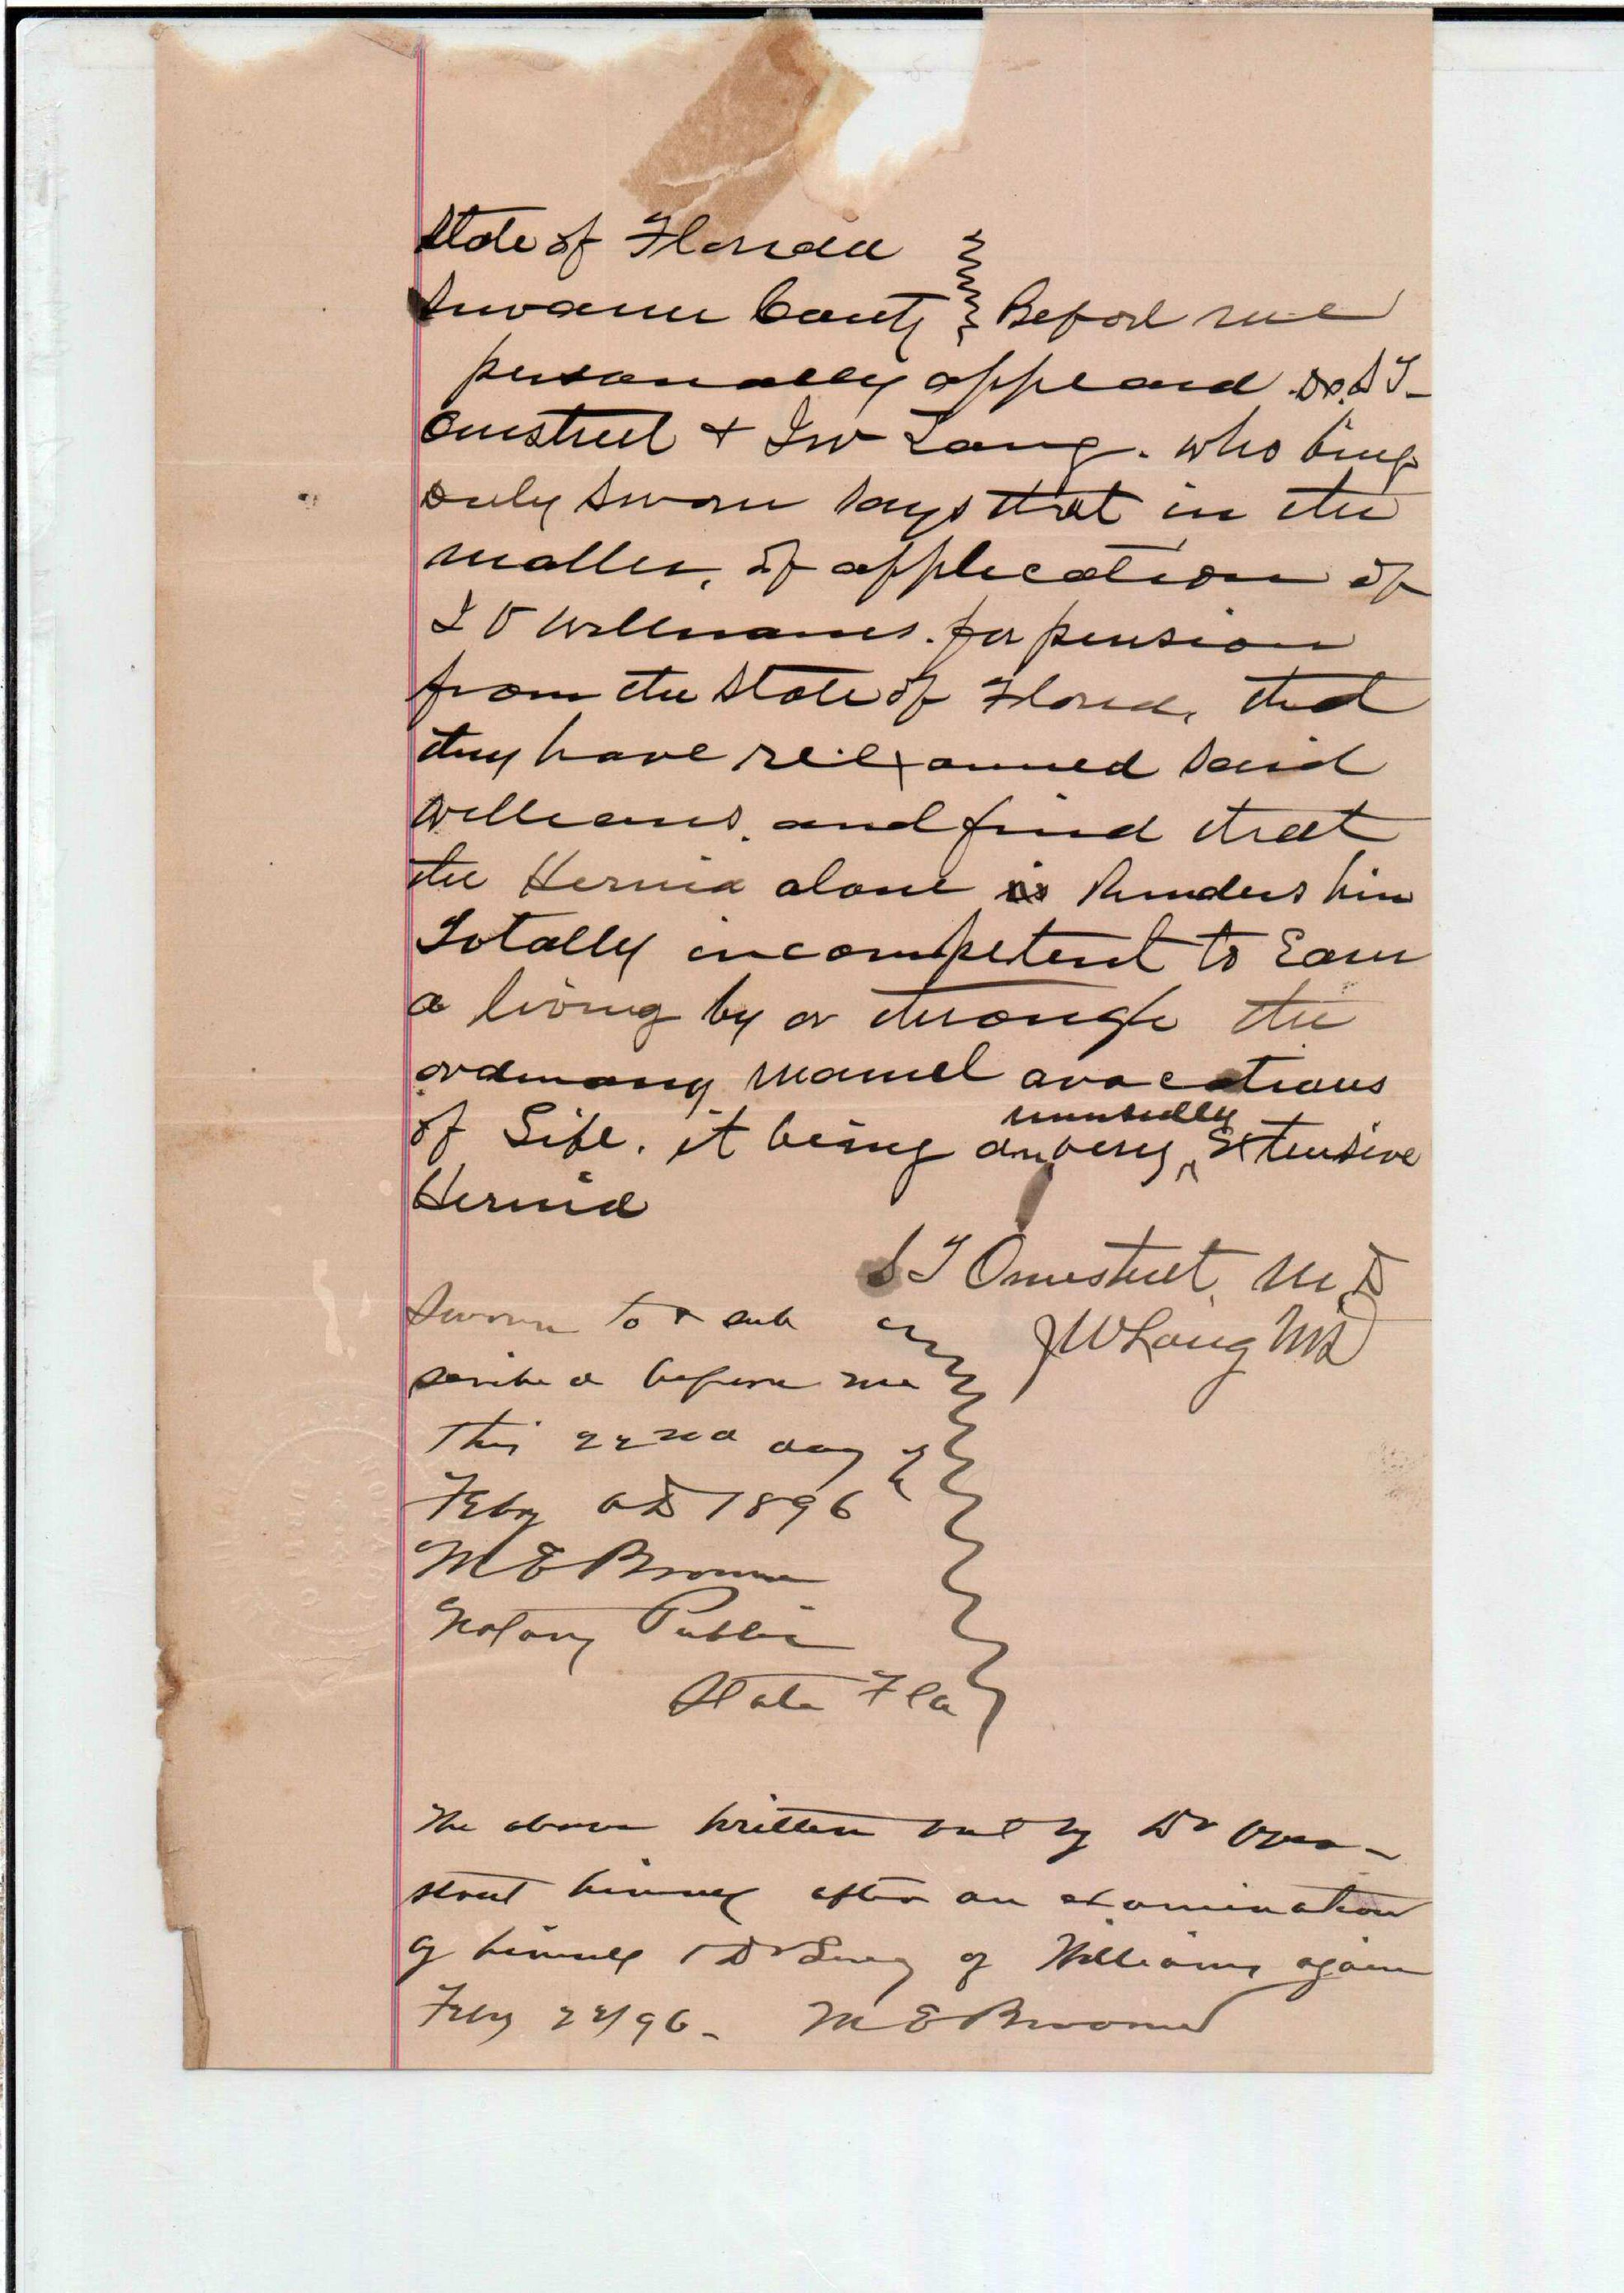 State of Florida
Suwanee County Before me
personally appeard Drs. S T
Overstreet & J W Long. who being
duly sworn says that in the
matter, of application of
Williams. for pension
from the State of Florida, that
they have reexamined said
Williams. and find that
the Hernia alone is Renders him
Totally incompetent to Earn
a living by or through the
ordinary manuel avocations
of Life. it being an very unusually Extensive
Hernia
S T Overstreet, M. D
J W Long MD
Sworn to & sub
scribed before me
This 22nd day of
Feby AD 1896
M E Broome
Notary Public
State Fla
The above written out by Dr Over-
street himself after an examination
of himself & Dr Long of Williams again
Feby 22/96 - M E Broome